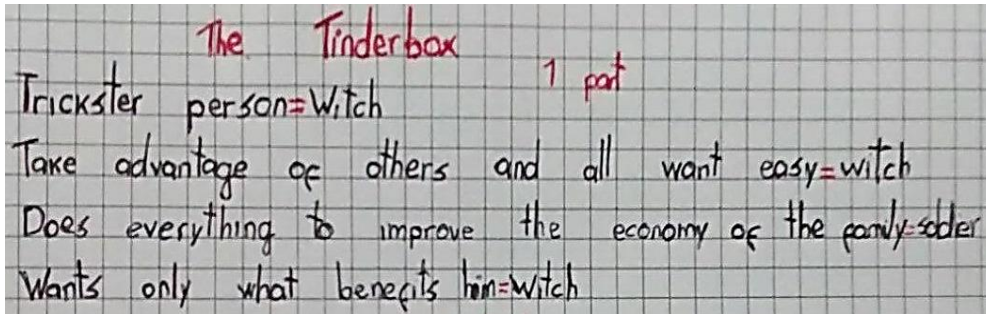 The Tinderbox
1 part
Trickster person=Witch
Take advantage of others and all want easy=witch
Does everything to improve the economy of the family=solder
Wants only what benefits him=witch